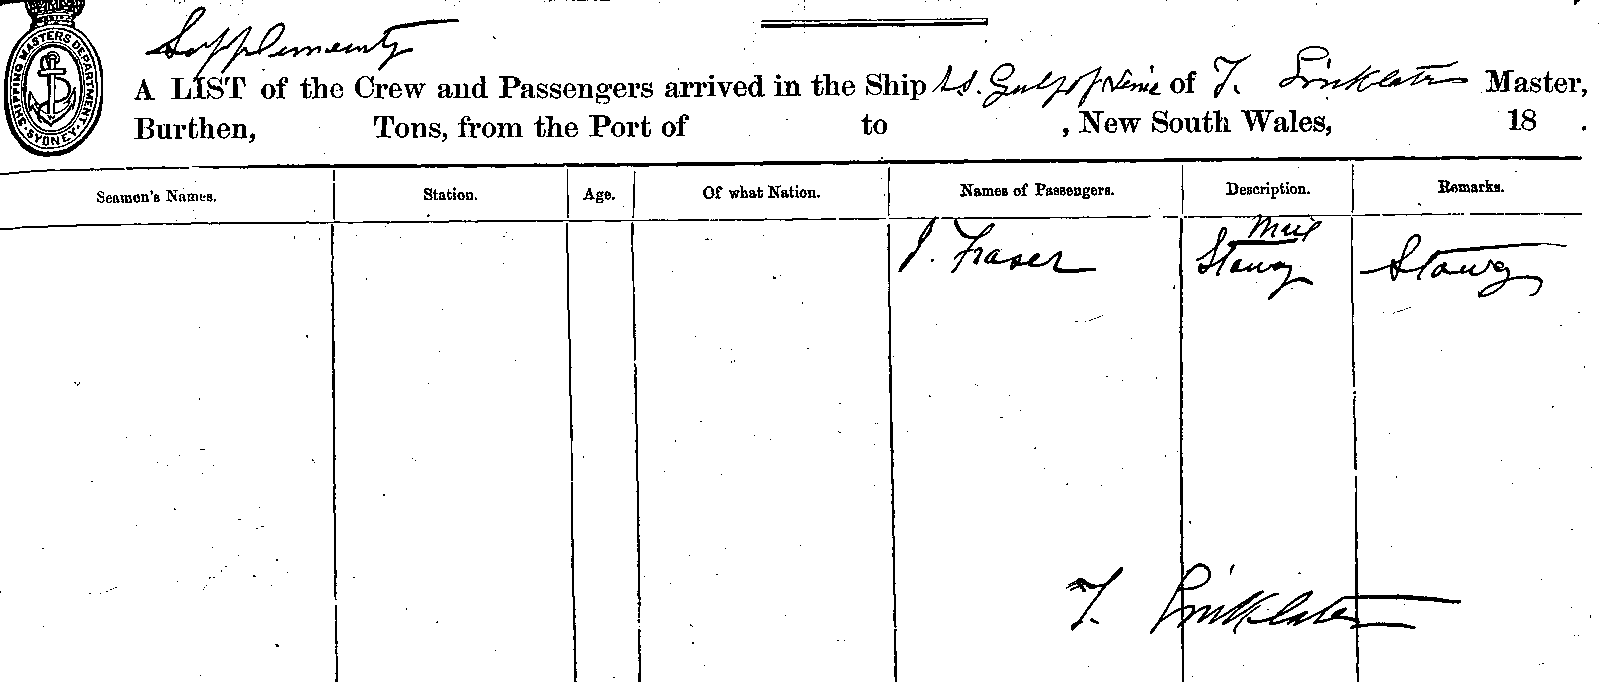 SHIPPING MASTERS DEPARTMENT
SYDNEY
Supplementy
A LIST of the Crew and Passengers arrived in the Ship s.s. Gulf of Venice of T. Linklater Master,
Burthen, Tons, from the Port of to , New South Wales, 18 .
Seamen's Names. Station. Age. Of what Nation. Names of Passengers. Description. Remarks.
Mail
J. Fraser Stowy Stowy
T. Linklater